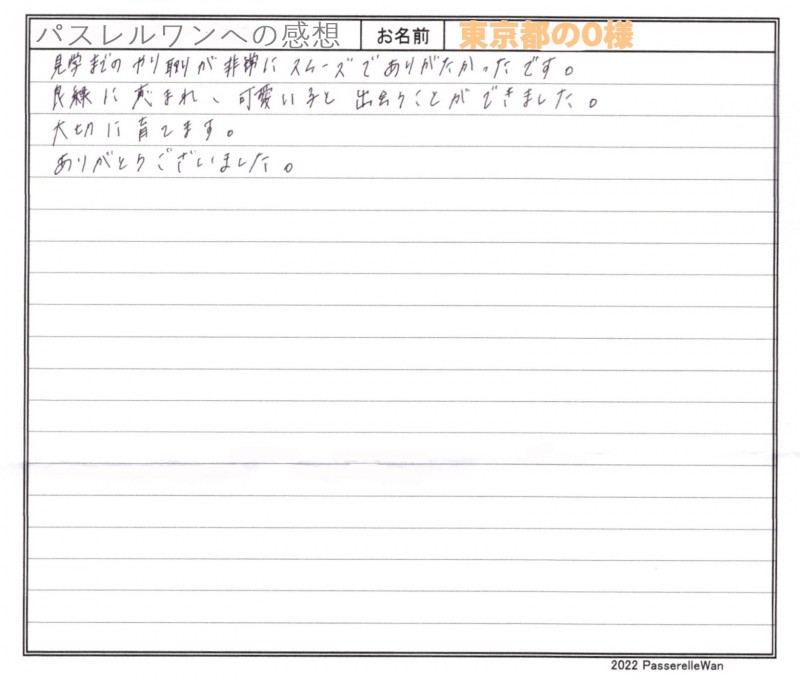 パスレルワンへの感想 お名前 東京都のO様
見学までのやり取りが非常にスムーズでありがたかったです。
良縁に恵まれ、可愛い子と出会うことができました。
大切に育てます。
ありがとうございました。
2022 PasserelleWan